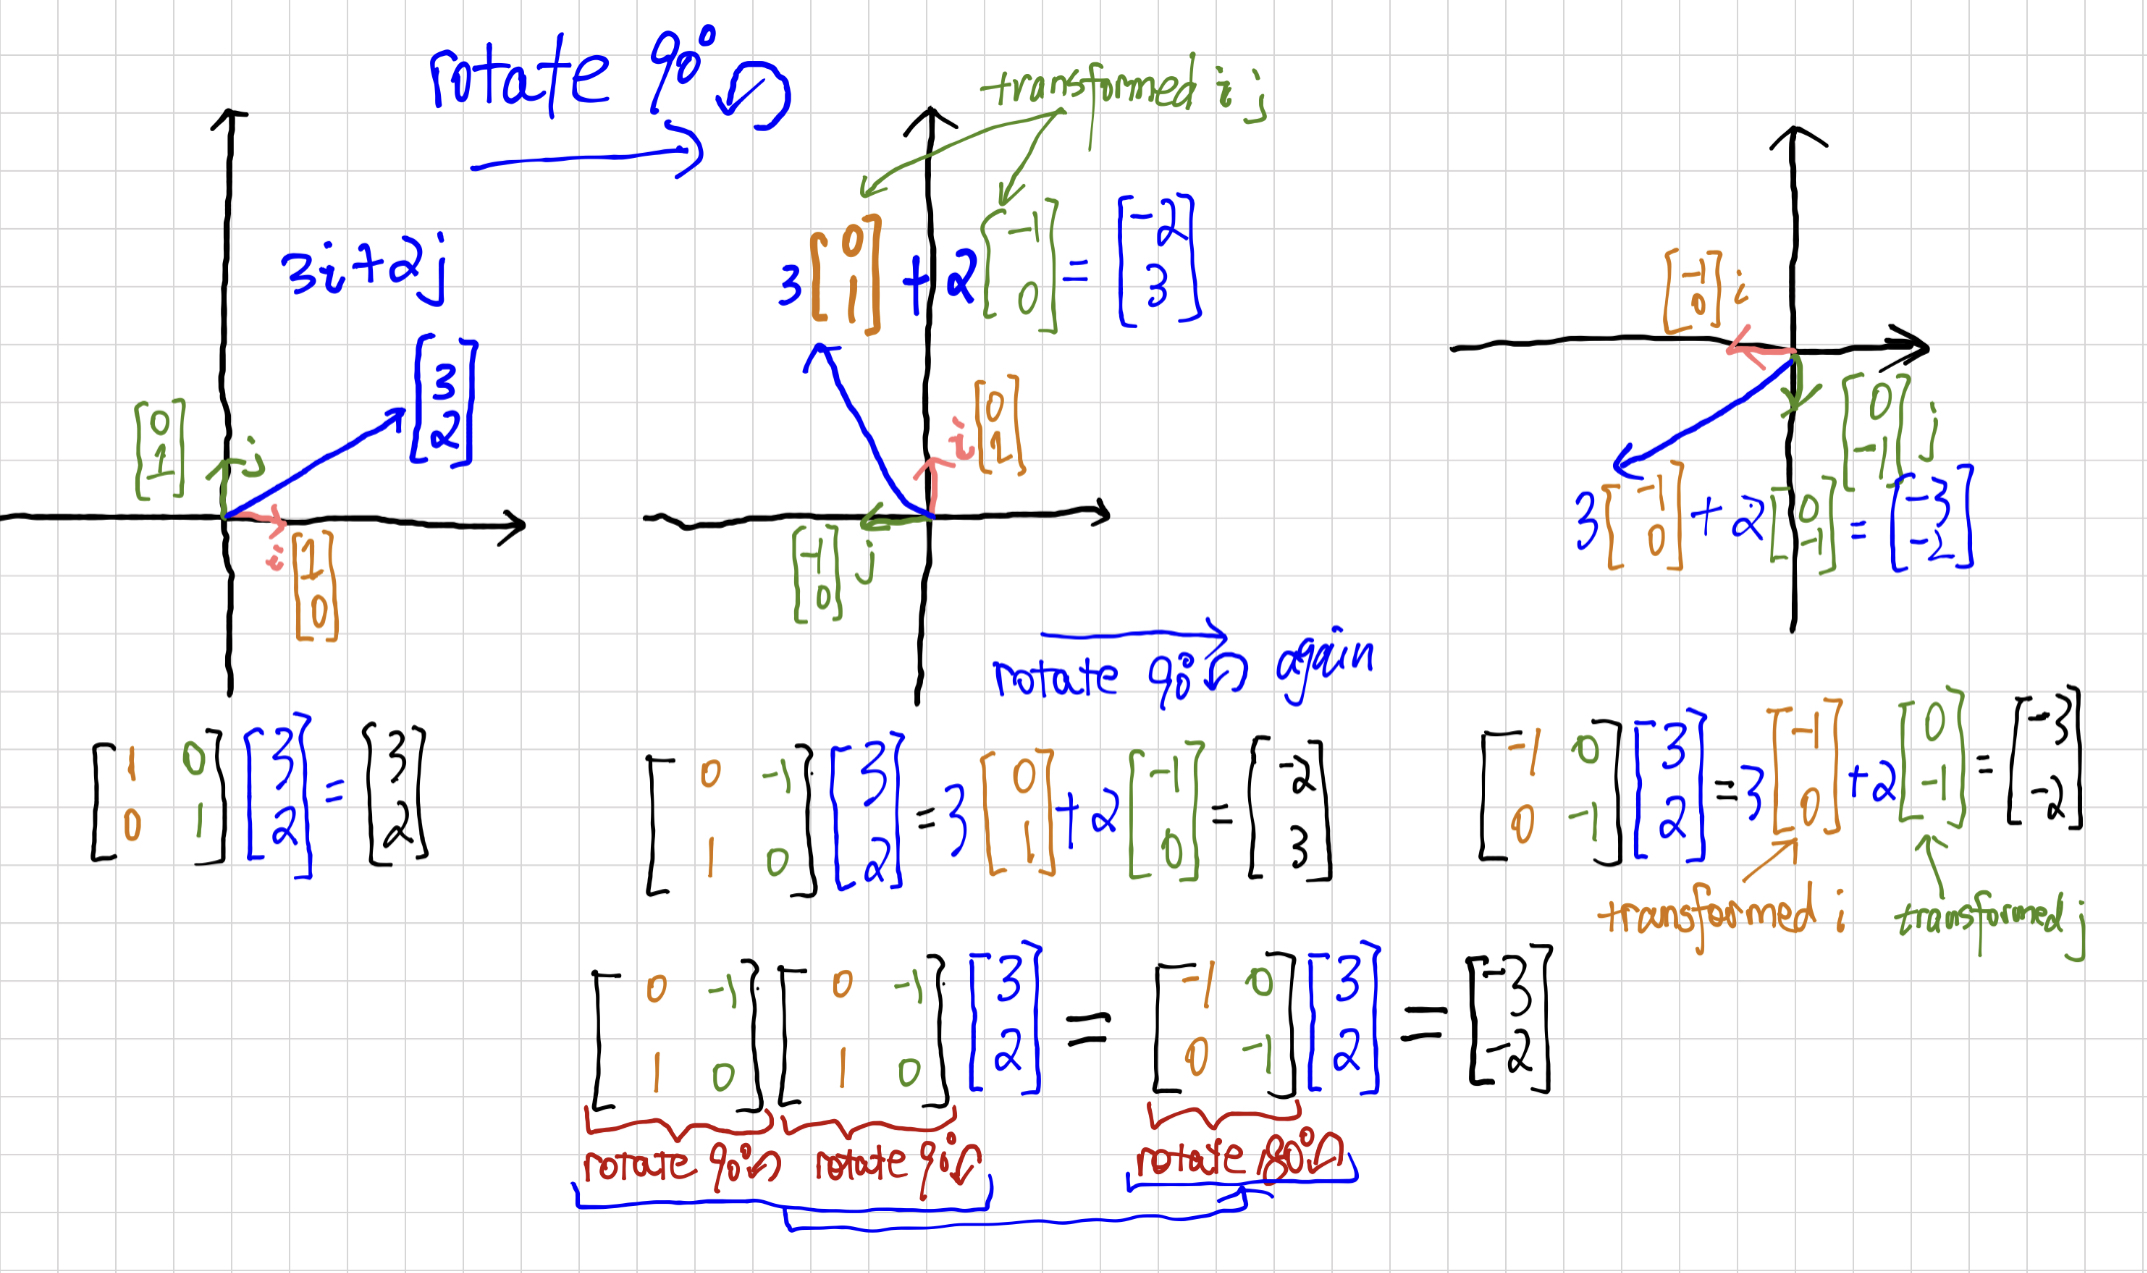 rotate 90° ↺
transformed i j
3i+2j
[3 2]
[0 1] j
i [1 0]
3[0 1] + 2[-1 0] = [-2 3]
i [0 1]
[-1 0] j
[-1 0] i
[0 -1] j
3[-1 0] + 2[0 -1] = [-3 -2]
rotate 90° ↺ again
[1 0; 0 1] [3 2] = [3 2]
[0 -1; 1 0] [3 2] = 3[0 1] + 2[-1 0] = [-2 3]
[-1 0; 0 -1] [3 2] = 3[-1 0] + 2[0 -1] = [-3 -2]
transformed i
transformed j
[0 -1; 1 0] [0 -1; 1 0] [3 2] = [-1 0; 0 -1] [3 2] = [-3 -2]
rotate 90° ↺ rotate 90° ↺ rotate 180° ↺